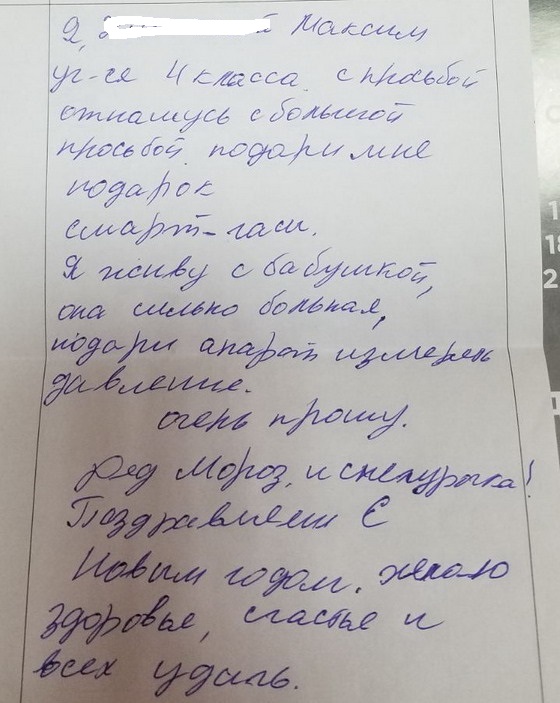 Я, й Максим
уг-ся 4 класса. с прозьбой
отнашусь с большой
просьбой. подари мне
подарок
смарт-гасы.
Я живу с бабушкой,
она сильно больная,
подари апарат измерять
давление.
очень прошу.
Дед Мороз, и снегурочка!
Поздравляем С
Новым годом. желаю
здоровье, счастье и
всех удачь.
1
18
2